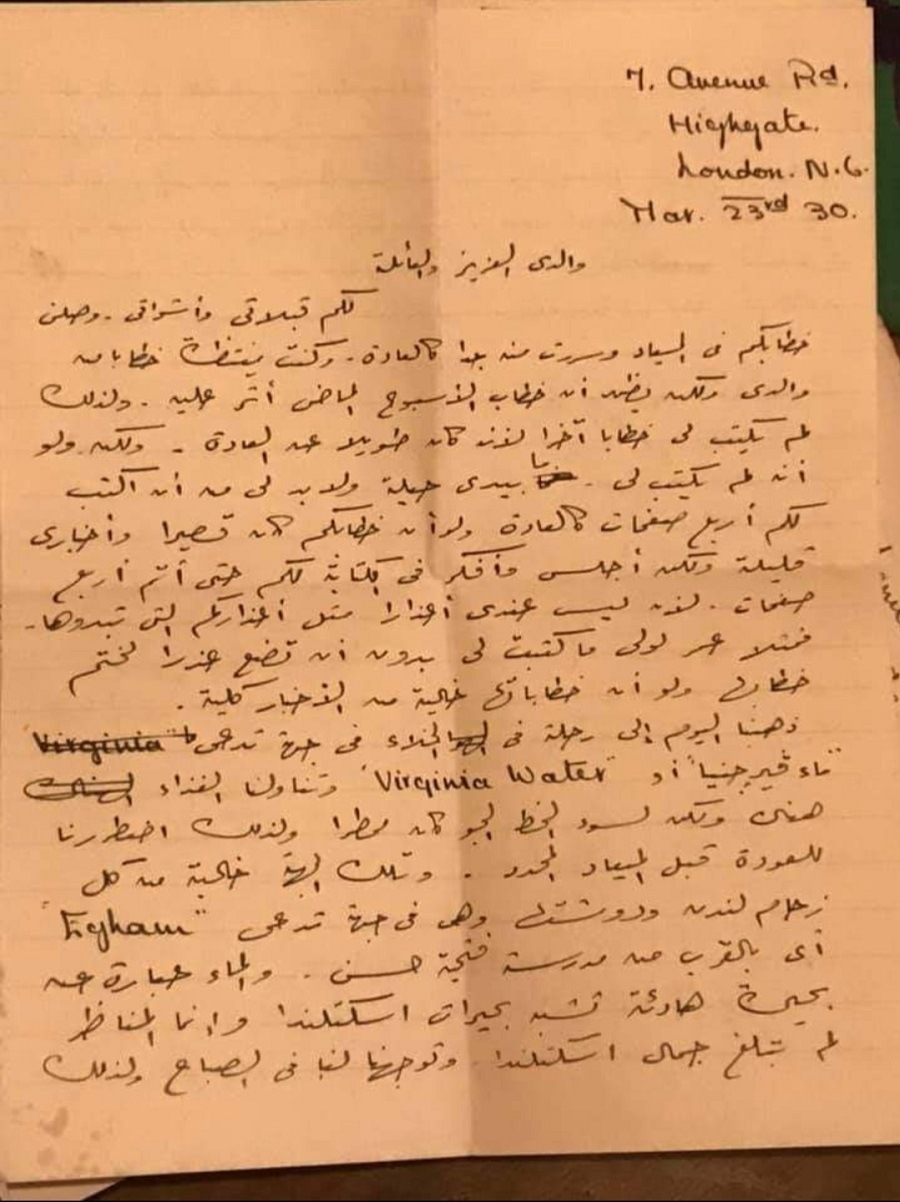 7. Avenue Rd.
Highgate.
London. N. 6.
Mar. 23rd 30.
والدى العزيز والعائلة
لكم قبلاتى وأشواقى . وصلنى
خطابكم فى الميعاد وسررت منه جدا كالعادة . وكنت منتظرة خطابا من
والدى ولكن يظهر أن خطاب الأسبوع الماضى أثر عليه . ولذلك
لم يكتب لى خطابا آخرا لأنه كان طويلا عن العادة . ولكن ولو
أنه لم يكتب لى . ما بيدى حيلة ولابد لى من أن اكتب
لكم أربع صفحات كالعادة ولو أن خطابكم كان قصيرا وأخبارى
قليلة ولكن أجلس وأفكر فى الكتابة لكم حتى أتم أربع
صفحات . لأن ليس عندى أعذارا مثل أعذاركم التى تبدوها .
فمثلا عمر لولى ما كتبت لى بدون أن تضع عذرا لختم
خطابها ولو أن خطاباتها خالية من الأخبار كلية .
ذهبنا اليوم إلى رحلة فى الخلاء فى جهة تدعى Virginia
"ماء ڤيرجنيا" أو "Virginia Water" وتناولنا الغذاء
هناك ولكن لسوء الحظ الجو كان ممطرا ولذلك اضطررنا
للعودة قبل الميعاد المحدد . وتلك الجهة خالية من كل
زحام لندن ودوشتها وهى فى جهة تدعى "Egham"
أى بالقرب من مدرسة فتحية حسن . والماء عبارة عن
بحيرة هادئة تشبه بحيرات اسكتلندا وإنما المناظر
لم تبلغ جمال اسكتلندا وتوجهنا لها فى الصباح ولذلك